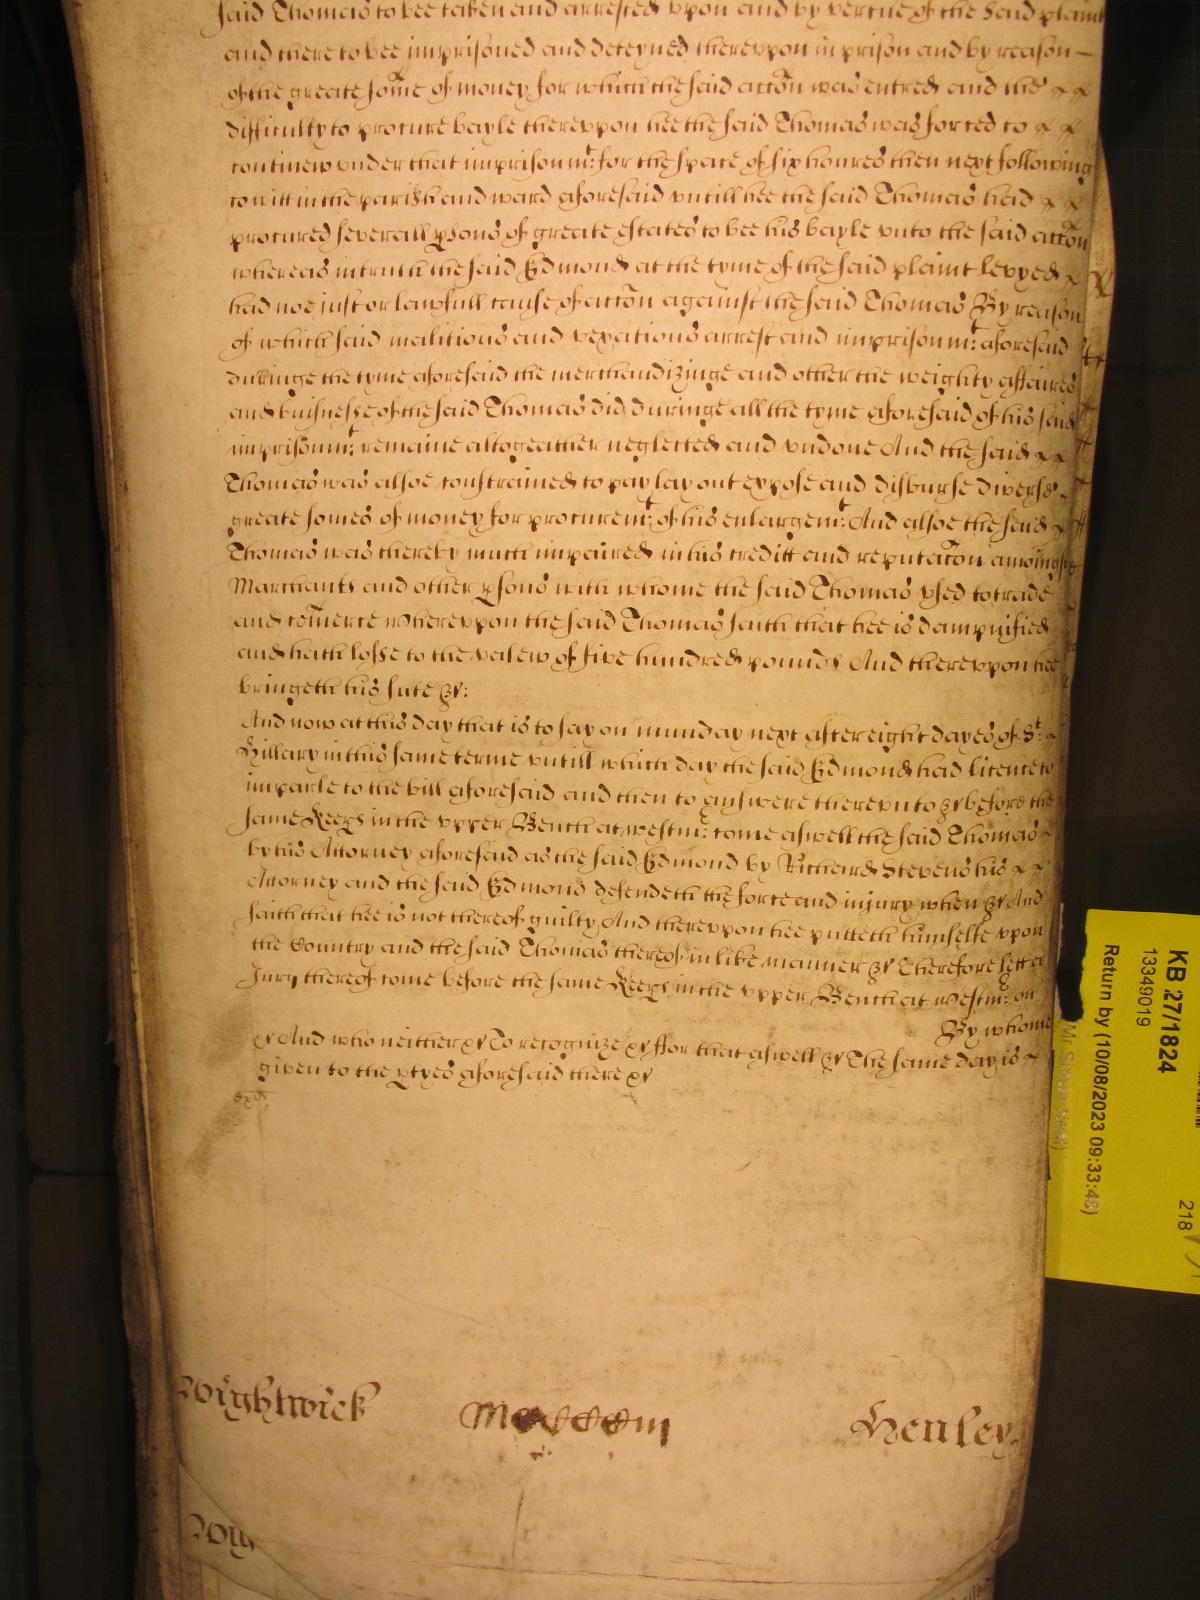 said Thomas to bee taken and arrested vpon and by vertue of the said plaint
and there to bee imprisoned and deteyned therevpon in prison and by reason
of the greate some of money for which the said accon was entred and the
difficulty to procure bayle therevpon hee the said Thomas was forced to
continew vnder that imprisonmt: for the space of six houres then next following
to witt in the parish and ward aforesaid vntill hee the said Thomas had
procured severall psons of greate estates to bee his bayle vnto the said accon
whereas in truth the said Edmond at the tyme of the said plaint levyed
had noe just or lawfull cause of accon against the said Thomas By reason
of which said malitious and vexatious arrest and imprisonmt: aforesaid
duringe the tyme aforesaid the merchandizinge and other the weighty affaires
and buisnesse of the said Thomas did duringe all the tyme aforesaid of his said
imprisonmt: remaine altogeather neglected and vndone And the said
Thomas was alsoe constrained to pay lay out expose and disburse diverse
greate somes of money for procuremt: of his enlargemt: And alsoe the said
Thomas was thereby much impaired in his creditt and reputacon amongst
Marchants and other psons with whome the said Thomas vsed to trade
and comerce Wherevpon the said Thomas saith that hee is dampnified
and hath losse to the valew of five hundred pounds And therevpon hee
bringeth his sute &c:
And now at this day that is to say on munday next after eight dayes of St:
Hillary in this same terme vntill which day the said Edmond had licence to
imparle to the bill aforesaid and then to answere therevnto &c before the
same Keeps in the vpper Bench at westmr: come aswell the said Thomas
by his Attorney aforesaid as the said Edmond by Richard Stevens his
Attorney and the said Edmond defendeth the force and injury when &c And
saith that hee is not thereof guilty And therevpon hee putteth himselfe vpon
the Country and the said Thomas thereof in like manner &c Therefore lett a
Jury thereof come before the same Keeps in the vpper Bench at Westmr: on
By whome
&c And who neither &c To recognize &c ffor that aswell &c The same day is
given to the ptyes aforesaid there &c
Wightwick
Henley
Wig
KB 27/1824
13349019
Return by (10/08/2023 09:33:48)
218